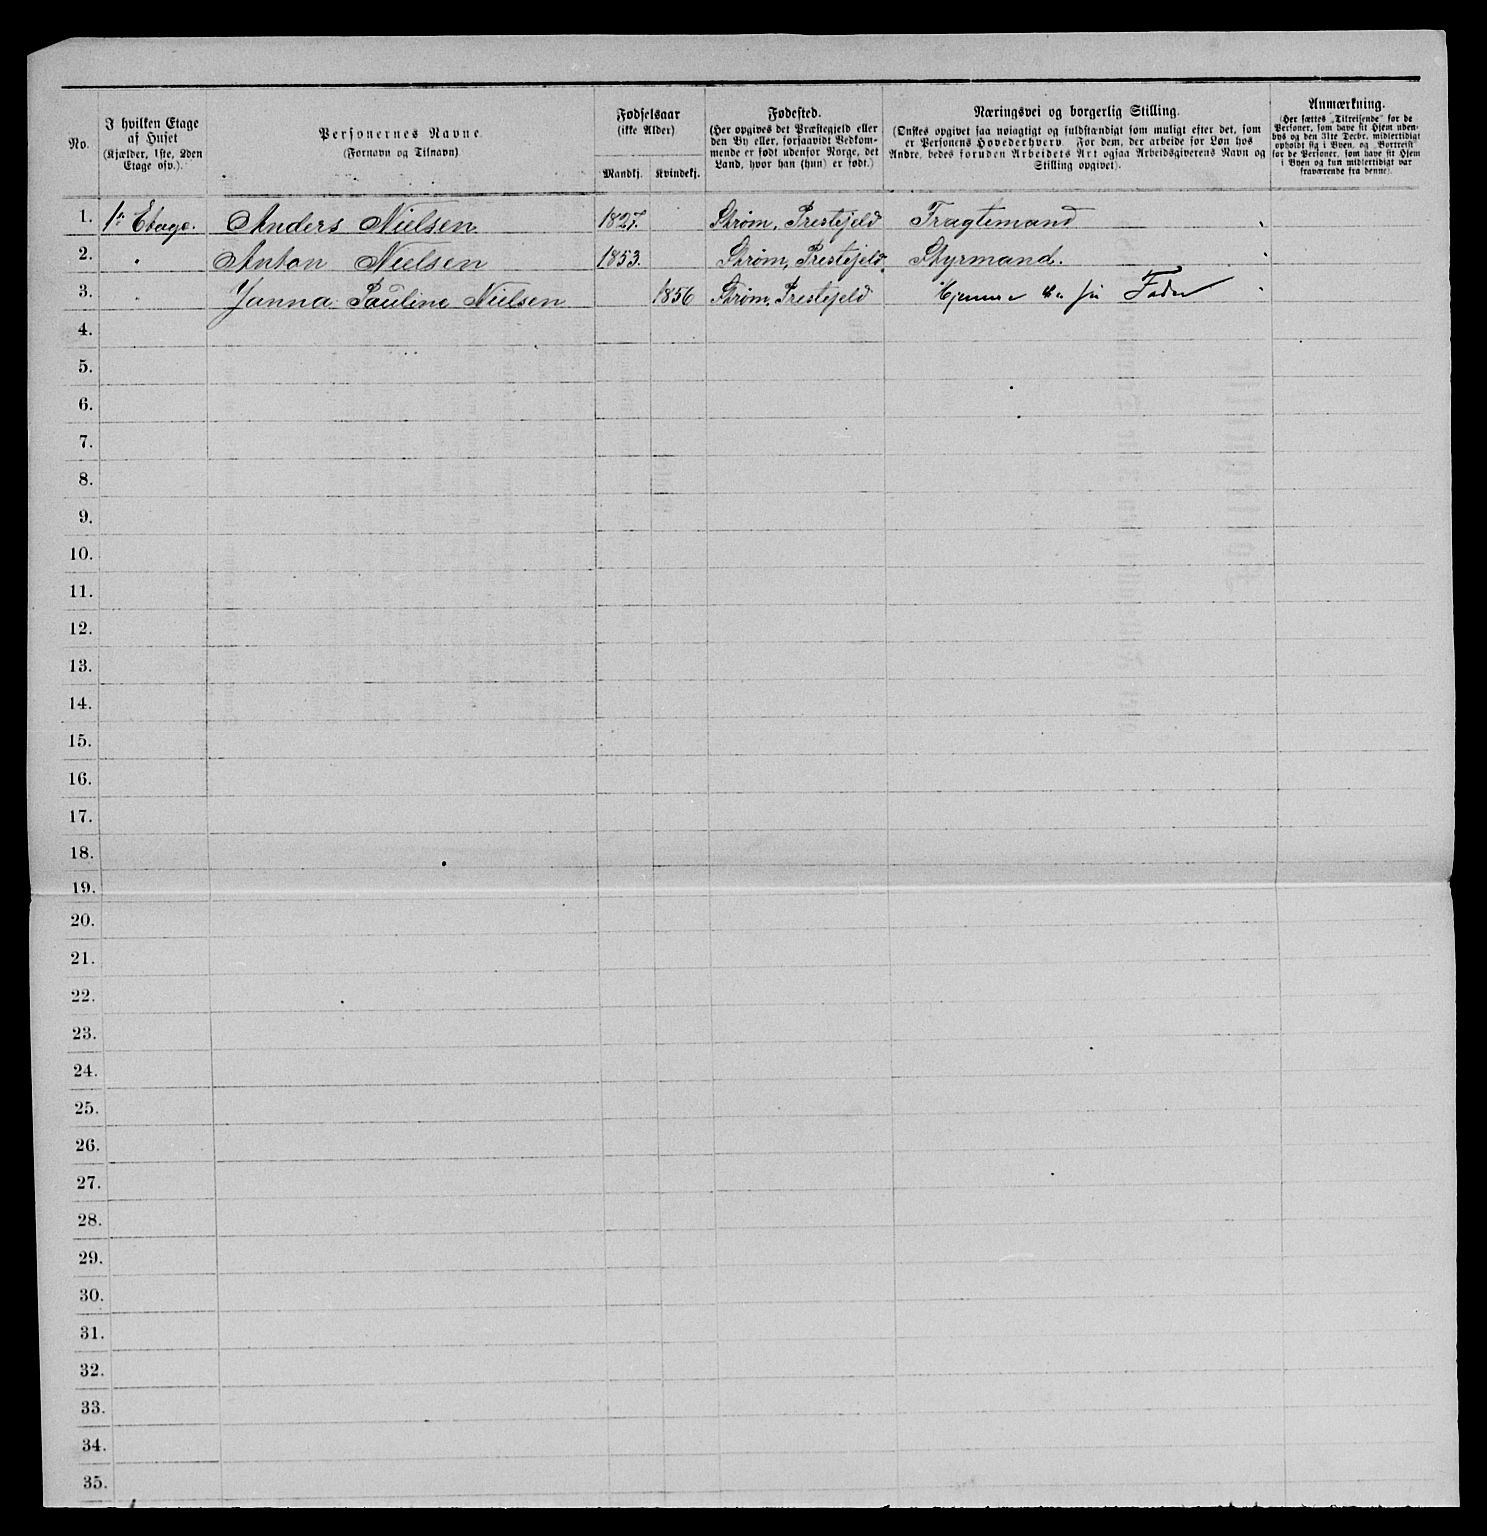 No.
I hvilken Etage
af Huset
(Kjælder, 1ste, 2den
Etage osv.).
Personernes Navne.
(Fornavn og Tilnavn)
Fødselsaar
(ikke Alder)
Mandkj. Kvindekj.
Fødested.
(Her opgives det Præstegjeld eller
den By eller, forsaavidt Vedkom-
mende er født udenfor Norge, det
Land, hvor han (hun) er født.)
Næringsvei og borgerlig Stilling.
(Ønskes opgivet saa nøiagtigt og fuldstændigt som muligt efter det, som
er Personens Hovederhverv. For dem, der arbeide for Løn hos
Andre, bedes foruden Arbeidets Art ogsaa Arbeidsgiverens Navn og
Stilling opgivet).
Anmærkning.
(Her sættes „Tilreisende" for de
Personer, som have sit Hjem uden-
bys og den 31te Decbr. midlertidigt
opholdt sig i Byen, og „Bortreist"
for de Personer, som have sit Hjem
i Byen og kun midlertidigt var
fraværende fra denne).
1. 1ste Etage. Anders Nielsen 1827. Strøm, Prestejeld Fragtemand
2. " Anton Nielsen 1853. Strøm, Prestejeld. Styrmand.
3. " Janna Pauline Nielsen 1856 Strøm, Prestejeld Hjemme Fader
4.
5.
6.
7.
8.
9.
10.
11.
12.
13.
14.
15.
16.
17.
18.
19.
20.
21.
22.
23.
24.
25.
26.
27.
28.
29.
30.
31.
32.
33.
34.
35.